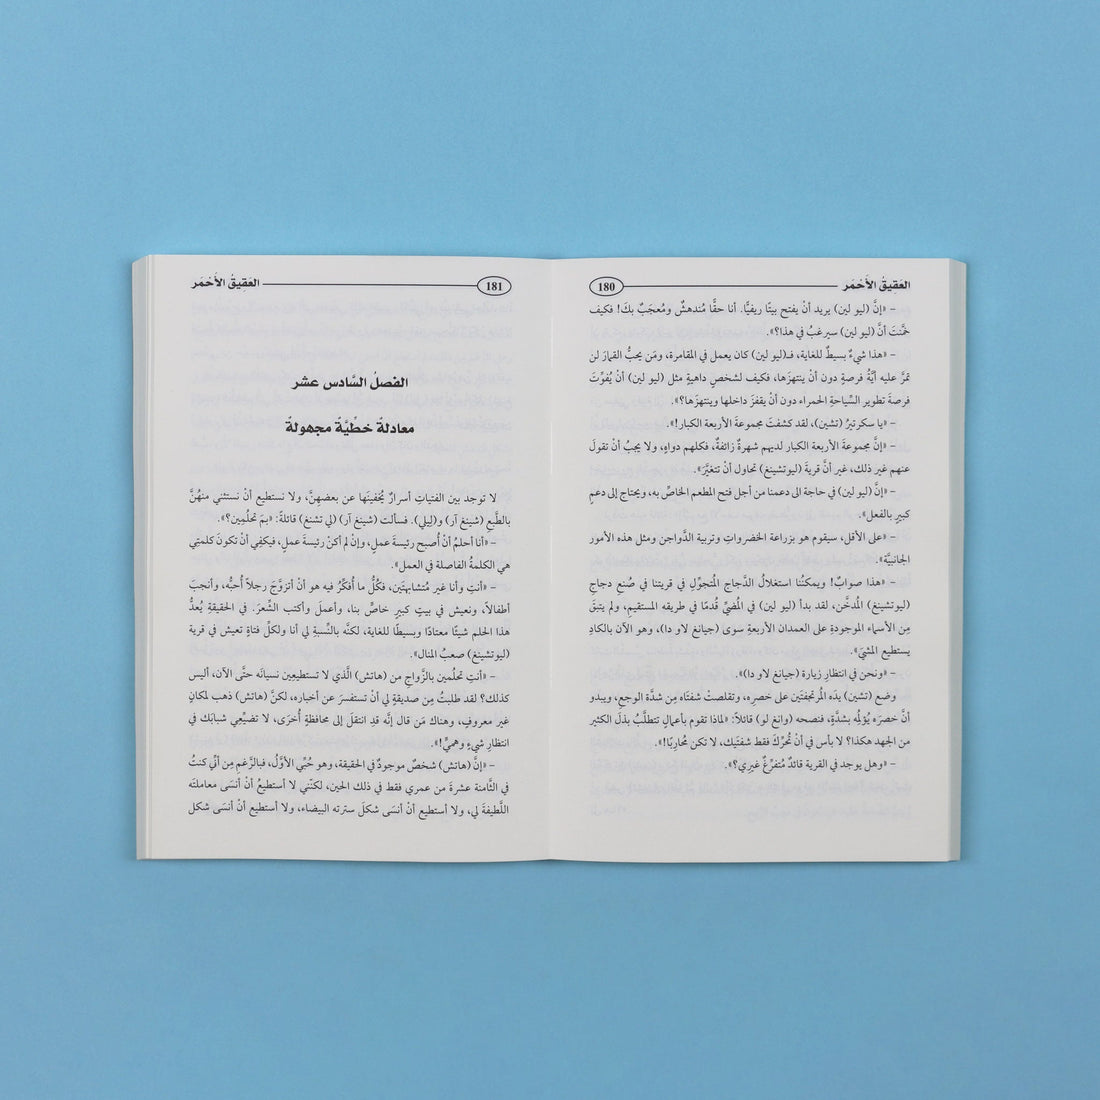 العَقيقُ الأَحْمَر
180
– «إنَّ (ليو لين) يريد أنْ يفتح بيتًا ريفيًّا. أنا حقًّا مُندهشٌ ومُعجَبٌ بكَ! فكيف
خمَّنتَ أنَّ (ليو لين) سيرغبُ في هذا؟».
– «هذا شيءٌ بسيطٌ للغاية، فـ(ليو لين) كان يعمل في المقامرة، ومَن يحبُّ القمارَ لن
تمرَّ عليه أيَّةُ فرصةٍ دون أنْ ينتهزَها، فكيف لشخصٍ داهيةٍ مثل (ليو لين) أنْ يُفوِّتَ
فرصةَ تطوير السِّياحةِ الحمراء دون أنْ يقفزَ داخلها وينتهزَها؟».
– «يا سكرتيرُ (تشين)، لقد كشفتَ مجموعةَ الأربعة الكبار!».
– «إنَّ مجموعةَ الأربعة الكبار لديهم شهرةٌ زائفةٌ، فكلهم دواهٍ، ولا يجبُ أنْ تقولَ
عنهم غير ذلك، غير أنَّ قريةَ (ليوتشينغ) تحاول أنْ تتغيَّرَ».
– «إنَّ (ليو لين) في حاجة الى دعمنا من أجل فتح المطعم الخاصِّ به، ويحتاج إلى دعمٍ
كبيرٍ بالفعل».
– «على الأقل، سيقوم هو بزراعة الخضرواتِ وتربية الدَّواجن ومثل هذه الأمور
الجانبيَّة».
– «هذا صوابٌ! ويمكنُنا استغلالُ الدَّجاج المُتجوِّلِ في قريتنا في صُنعِ دجاجِ
(ليوتشينغ) المُدخَّن، لقد بدأ (ليو لين) في المُضيِّ قُدمًا في طريقه المستقيم، ولم يتبقَ
مِن الأسماء الموجودةِ على العمدان الأربعةِ سوى (جيانغ لاو دا)، وهو الآن بالكادِ
يستطيع المشيَ».
– «ونحن في انتظارِ زيارة (جيانغ لاو دا)».
وضع (تشين) يدَه المُرتجفتَين على خصرِه، وتقلصتْ شفتَاه مِن شدَّة الوجعِ، ويبدو
أنَّ خصرَه يُؤلمُه بشدَّةٍ، فنصحه (وانغ لو) قائلاً: «لماذا تقوم بأعمالٍ تتطلَّبُ بذلَ الكثير
من الجهد هكذا؟ لا بأس في أنْ تُحرِّكَ فقط شفتَيك، لا تكن مُحاربًا!».
– «وهل يوجد في القرية قائدٌ مُتفرِّغٌ غيري؟».
181
العَقيقُ الأَحْمَر
الفصلُ السَّادس عشر
معادلةٌ خطِّيَّةٌ مجهولةٌ
لا توجد بين الفتياتِ أسرارٌ يُخفينَها عن بعضهِنَّ، ولا نستطيع أنْ نستثني منهُنَّ
بالطَّبعِ (شينغ آر) و(ليلي). فسألت (شينغ آر) (لي تشنغ) قائلةً: «بمَ تحلُمِين؟».
– «أنا أحلمُ أنْ أُصبح رئيسةَ عملٍ، وإنْ لم أكنْ رئيسةَ عملٍ، فيكفِي أنْ تكونَ كلمتِي
هي الكلمةُ الفاصلة في العمل».
– «أنتِ وأنا غير مُتشابهتَين، فكلُّ ما أُفكِّرُ فيه هو أنْ أتزوَّجَ رجلاً أُحبُّه، وأنجبَ
أطفالاً، ونعيش في بيتٍ كبيرٍ خاصٍّ بنا، وأعملَ وأكتب الشِّعرَ. في الحقيقةِ يُعدُّ
هذا الحلم شيئًا معتادًا وبسيطًا للغاية، لكنَّه بالنِّسبةِ لي أنا ولكلِّ فتاةٍ تعيش في قرية
(ليوتشينغ) صعبُ المنال».
– «أنتِ تحلُمين بالزَّواجِ من (هاتش) الَّذي لا تستطيعِين نسيانَه حتَّى الآن، أليس
كذلك؟ لقد طلبتُ مِن صديقةٍ لي أنْ تستفسرَ عن أخباره، لكنَّ (هاتش) ذهب لمكانٍ
غير معروفٍ، وهناك مَن قال إنَّه قدِ انتقلَ إلى محافظةٍ أُخرَى، لا تضيِّعِي شبابَك في
انتظارِ شيءٍ وهميٍّ!».
– «إنَّ (هاتش) شخصٌ موجودٌ في الحقيقة، وهو حُبِّي الأوَّلُ، فبالرَّغمِ مِن أنِّي كنتُ
في الثَّامنة عشرةَ من عمري فقط في ذلك الحين، لكنَّني لا أستطيعُ أنْ أنسَى معاملتَه
اللَّطيفةَ لي، ولا أستطيع أنْ أنسَى شكلَ سترته البيضاء، ولا أستطيع أنْ أنسَى شكل